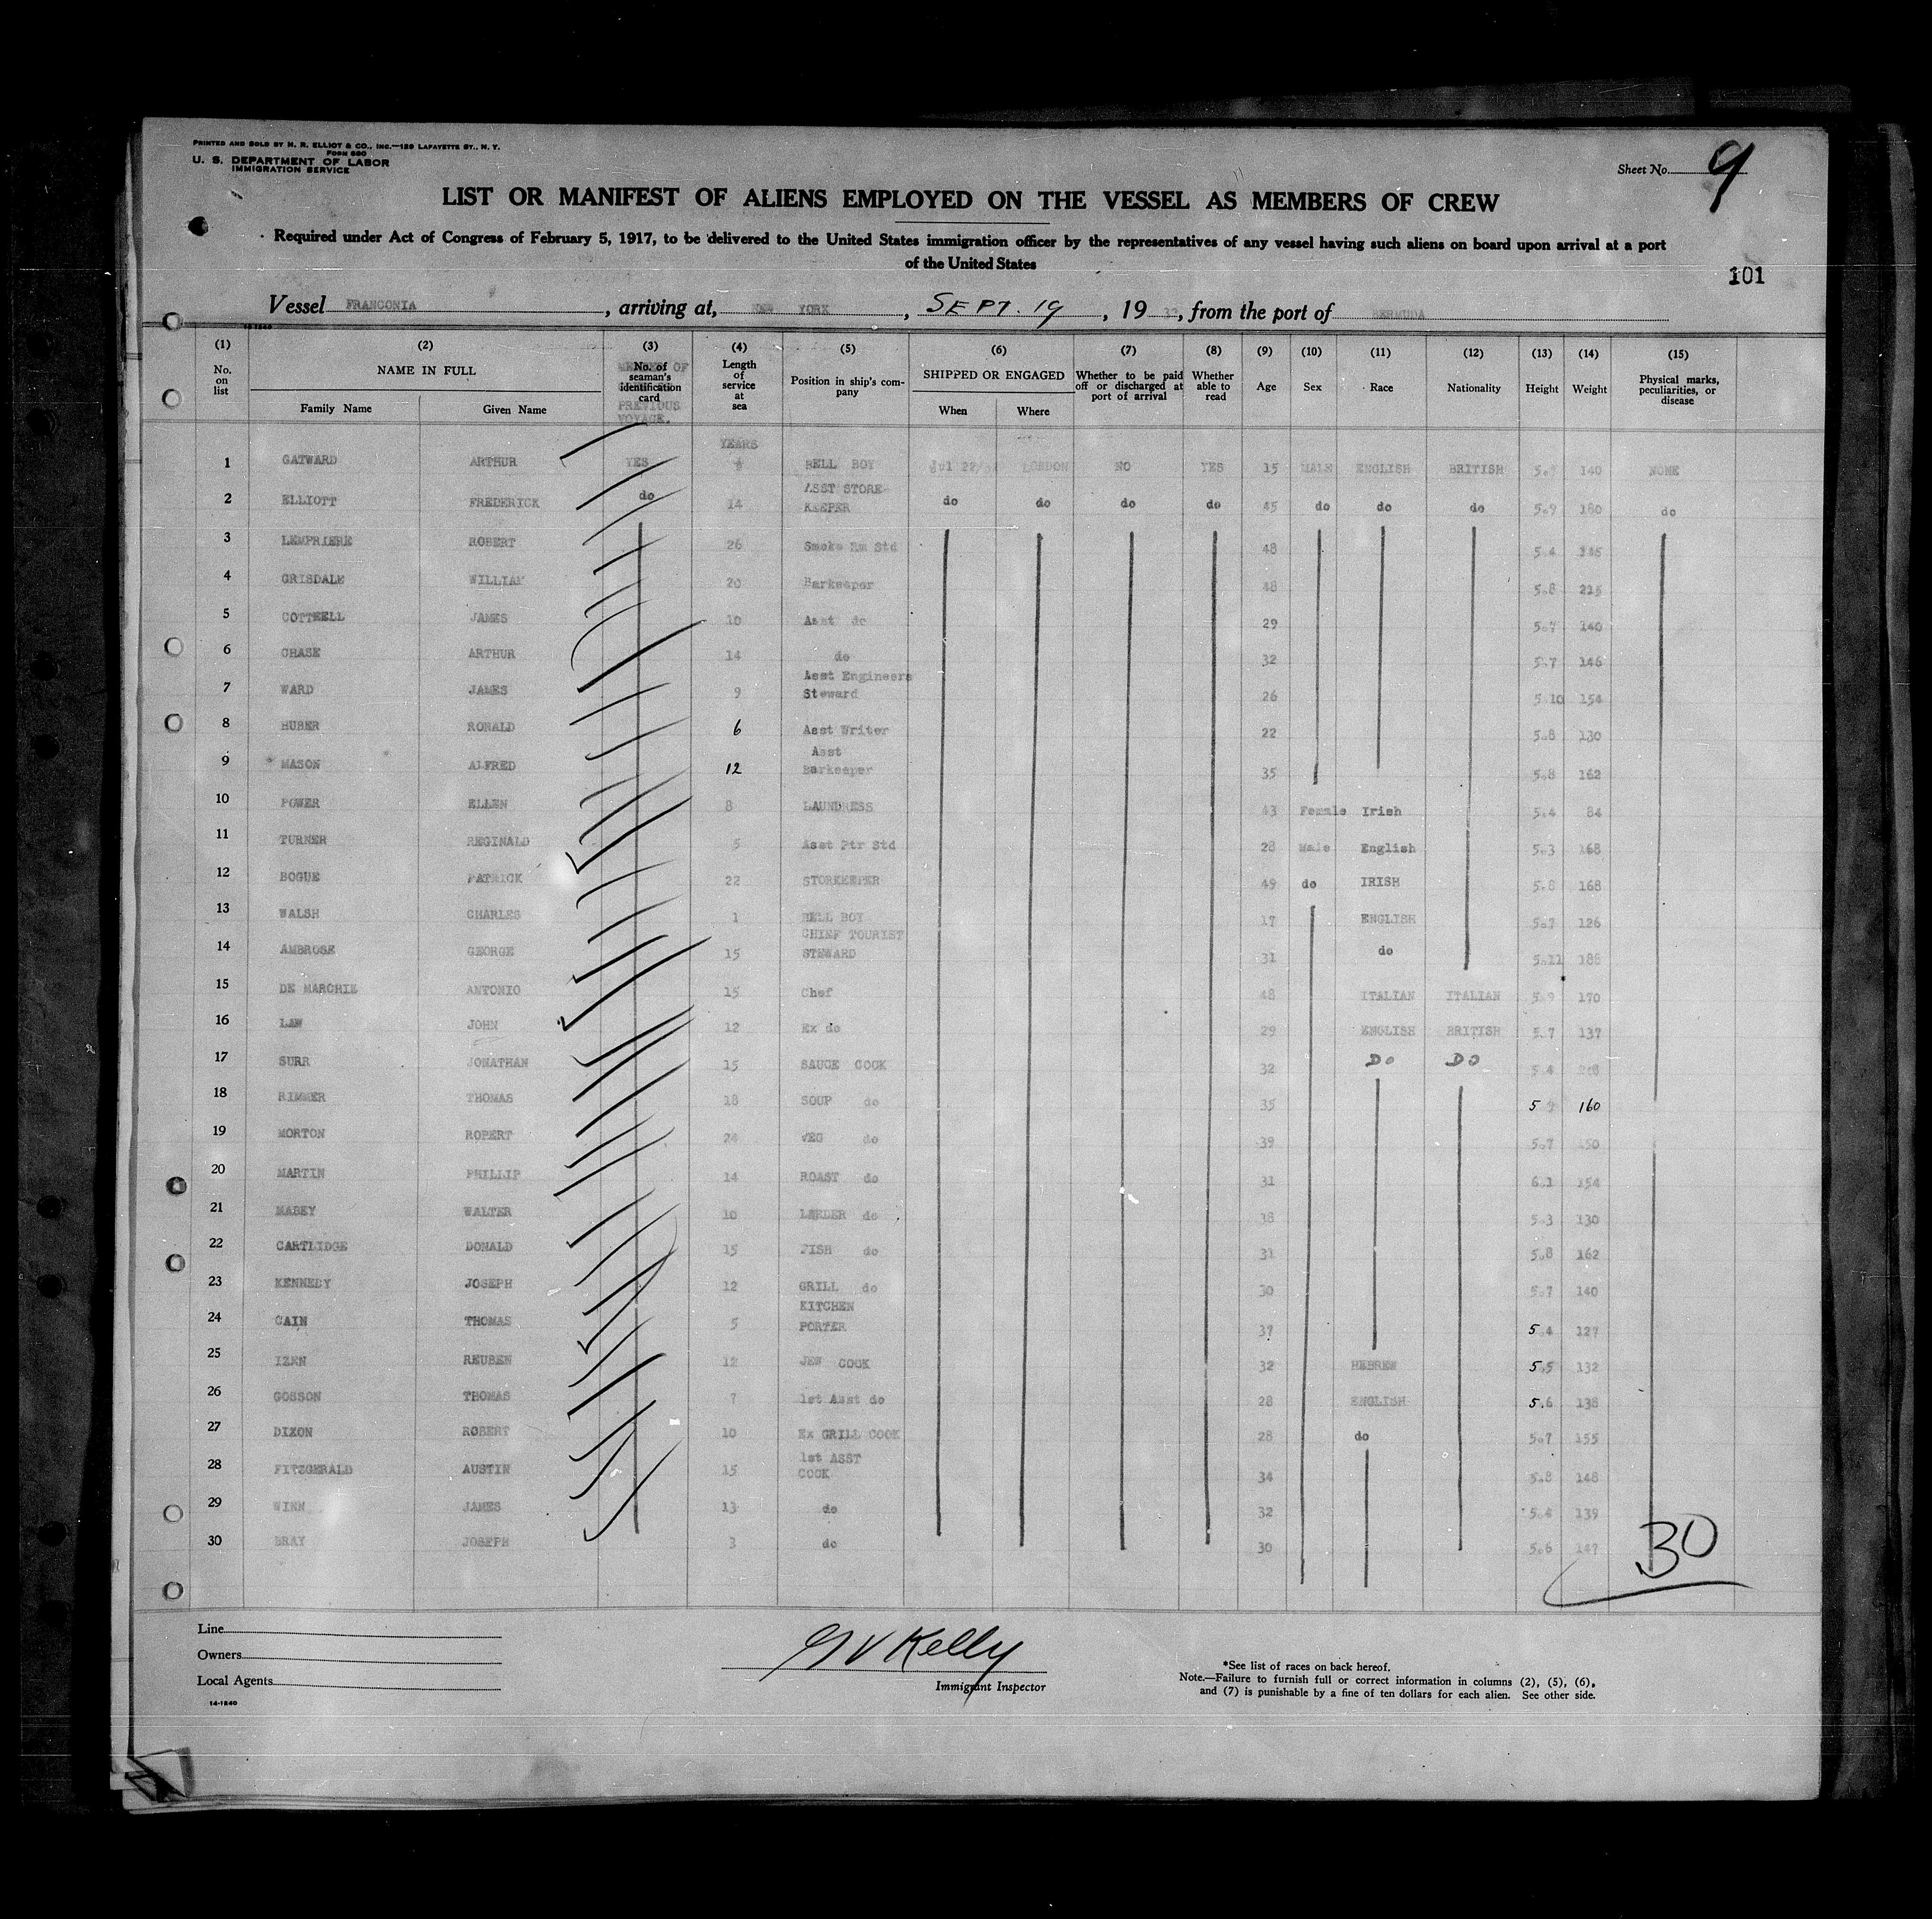 PRINTED AND SOLD BY H. R. ELLIOT & CO., INC.—129 LAFAYETTE ST., N. Y.
FORM 680
U. S. DEPARTMENT OF LABOR
IMMIGRATION SERVICE
Sheet No. 9
LIST OR MANIFEST OF ALIENS EMPLOYED ON THE VESSEL AS MEMBERS OF CREW
Required under Act of Congress of February 5, 1917, to be delivered to the United States immigration officer by the representatives of any vessel having such aliens on board upon arrival at a port
of the United States
101
Vessel FRANCONIA, arriving at, NEW YORK, SEPT. 19, 19 32, from the port of BERMUDA
14-1240
(1) (2) (3) (4) (5) (6) (7) (8) (9) (10) (11) (12) (13) (14) (15)
No. on list NAME IN FULL Family Name Given Name No. of seaman's identification card MEMBER OF PREVIOUS VOYAGE. Length of service at sea Position in ship's company SHIPPED OR ENGAGED When Where Whether to be paid off or discharged at port of arrival Whether able to read Age Sex Race Nationality Height Weight Physical marks, peculiarities, or disease
YEARS
1 GATWARD ARTHUR YES BELL BOY Jul 22/32 LONDON NO YES 15 MALE ENGLISH BRITISH 5.7 140 NONE
2 ELLIOTT FREDERICK do 14 ASST STORE-KEEPER do do do do 45 do do do 5.9 180 do
3 LEMPRIERE ROBERT 26 Smoke Rm Std 48 5.4 145
4 GRISDALE WILLIAM 20 Barkeeper 48 5.8 225
5 COTTRELL JAMES 10 Asst do 29 5.7 140
6 CHASE ARTHUR 14 do 32 5.7 146
7 WARD JAMES 9 Asst Engineers Steward 26 5.10 154
8 HUBER RONALD 6 Asst Writer 22 5.8 130
9 MASON ALFRED 12 Asst Barkeeper 35 5.8 162
10 POWER ELLEN 8 LAUNDRESS 43 Female Irish 5.4 84
11 TURNER REGINALD 5 Asst Ptr Std 28 Male English 5.3 168
12 BOGUE PATRICK 22 STOREKEEPER 49 do IRISH 5.8 168
13 WALSH CHARLES 1 BELL BOY 17 ENGLISH 5.7 126
14 AMBROSE GEORGE 15 CHIEF TOURIST STEWARD 31 do 5.11 188
15 DE MARCHIE ANTONIO 15 Chef 48 ITALIAN ITALIAN 5.9 170
16 LAW JOHN 12 Ex do 29 ENGLISH BRITISH 5.7 137
17 SURR JONATHAN 15 SAUCE COOK 32 DO DO 5.4
18 RIMMER THOMAS 18 SOUP do 35 5 160
19 MORTON ROBERT 24 VEG do 39 5.7 150
20 MARTIN PHILLIP 14 ROAST do 31 6.1 154
21 MABEY WALTER 10 LARDER do 38 5.3 130
22 CARTLIDGE DONALD 15 FISH do 31 5.8 162
23 KENNEDY JOSEPH 12 GRILL do 30 5.7 140
24 CAIN THOMAS 5 KITCHEN PORTER 37 5.4 127
25 IZEN REUBEN 12 JEW COOK 32 HEBREW 5.5 132
26 GOSSON THOMAS 7 1st Asst do 28 ENGLISH 5.6 138
27 DIXON ROBERT 10 Ex GRILL COOK 28 do 5.7 155
28 FITZGERALD AUSTIN 15 1st ASST COOK 34 5.8 148
29 WINN JAMES 13 do 32 5.4 139
30 BRAY JOSEPH 3 do 30 5.6 147
30
Line
Owners
Local Agents
14-1240
G V Kelly
Immigrant Inspector
*See list of races on back hereof.
Note.—Failure to furnish full or correct information in columns (2), (5), (6),
and (7) is punishable by a fine of ten dollars for each alien. See other side.